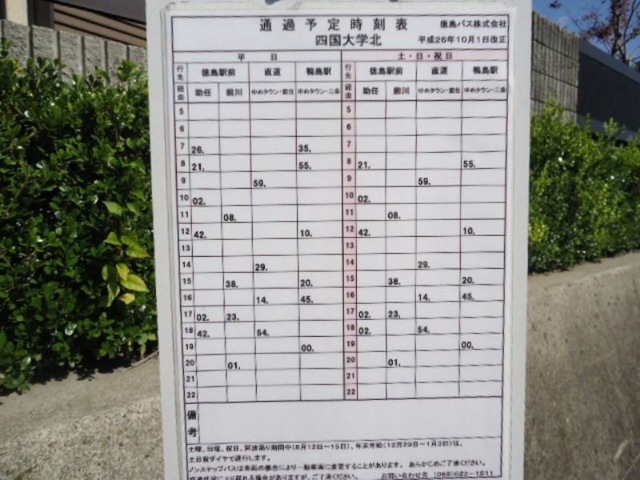 通過予定時刻表 徳島バス株式会社
四国大学北 平成26年10月1日改正
平 日 土・日・祝日
行先 徳島駅前 直通 鴨島駅 行先 徳島駅前 直通 鴨島駅
経由 助任 前川 ゆめタウン・ ゆめタウン・二条 経由 助任 前川 ゆめタウン・ ゆめタウン・二条
5 5
6 6
7 26. 35. 7
8 21. 55. 8 21. 55.
9 59. 9 59.
10 02. 10 02.
11 08. 11 08.
12 42. 10. 12 42. 10.
13 13
14 29. 14 29.
15 38. 20. 15 38. 20.
16 14. 45. 16 14. 45.
17 02. 23. 17 02. 23.
18 42. 54. 18 02. 54.
19 00. 19 00.
20 01. 20 01.
21 21
22 22
備考
土曜、日曜、祝日、阿波踊り期間中(8月12日~15日)、年末年始(12月29日~1月3日)は、
土日祝ダイヤで運行します。
ノンステップバスは車両の都合により一般車両に変更することがあります。 あらかじめご了承ください。
がありますが、ご了承ください。 お問い合わせ先 (088)622-1811